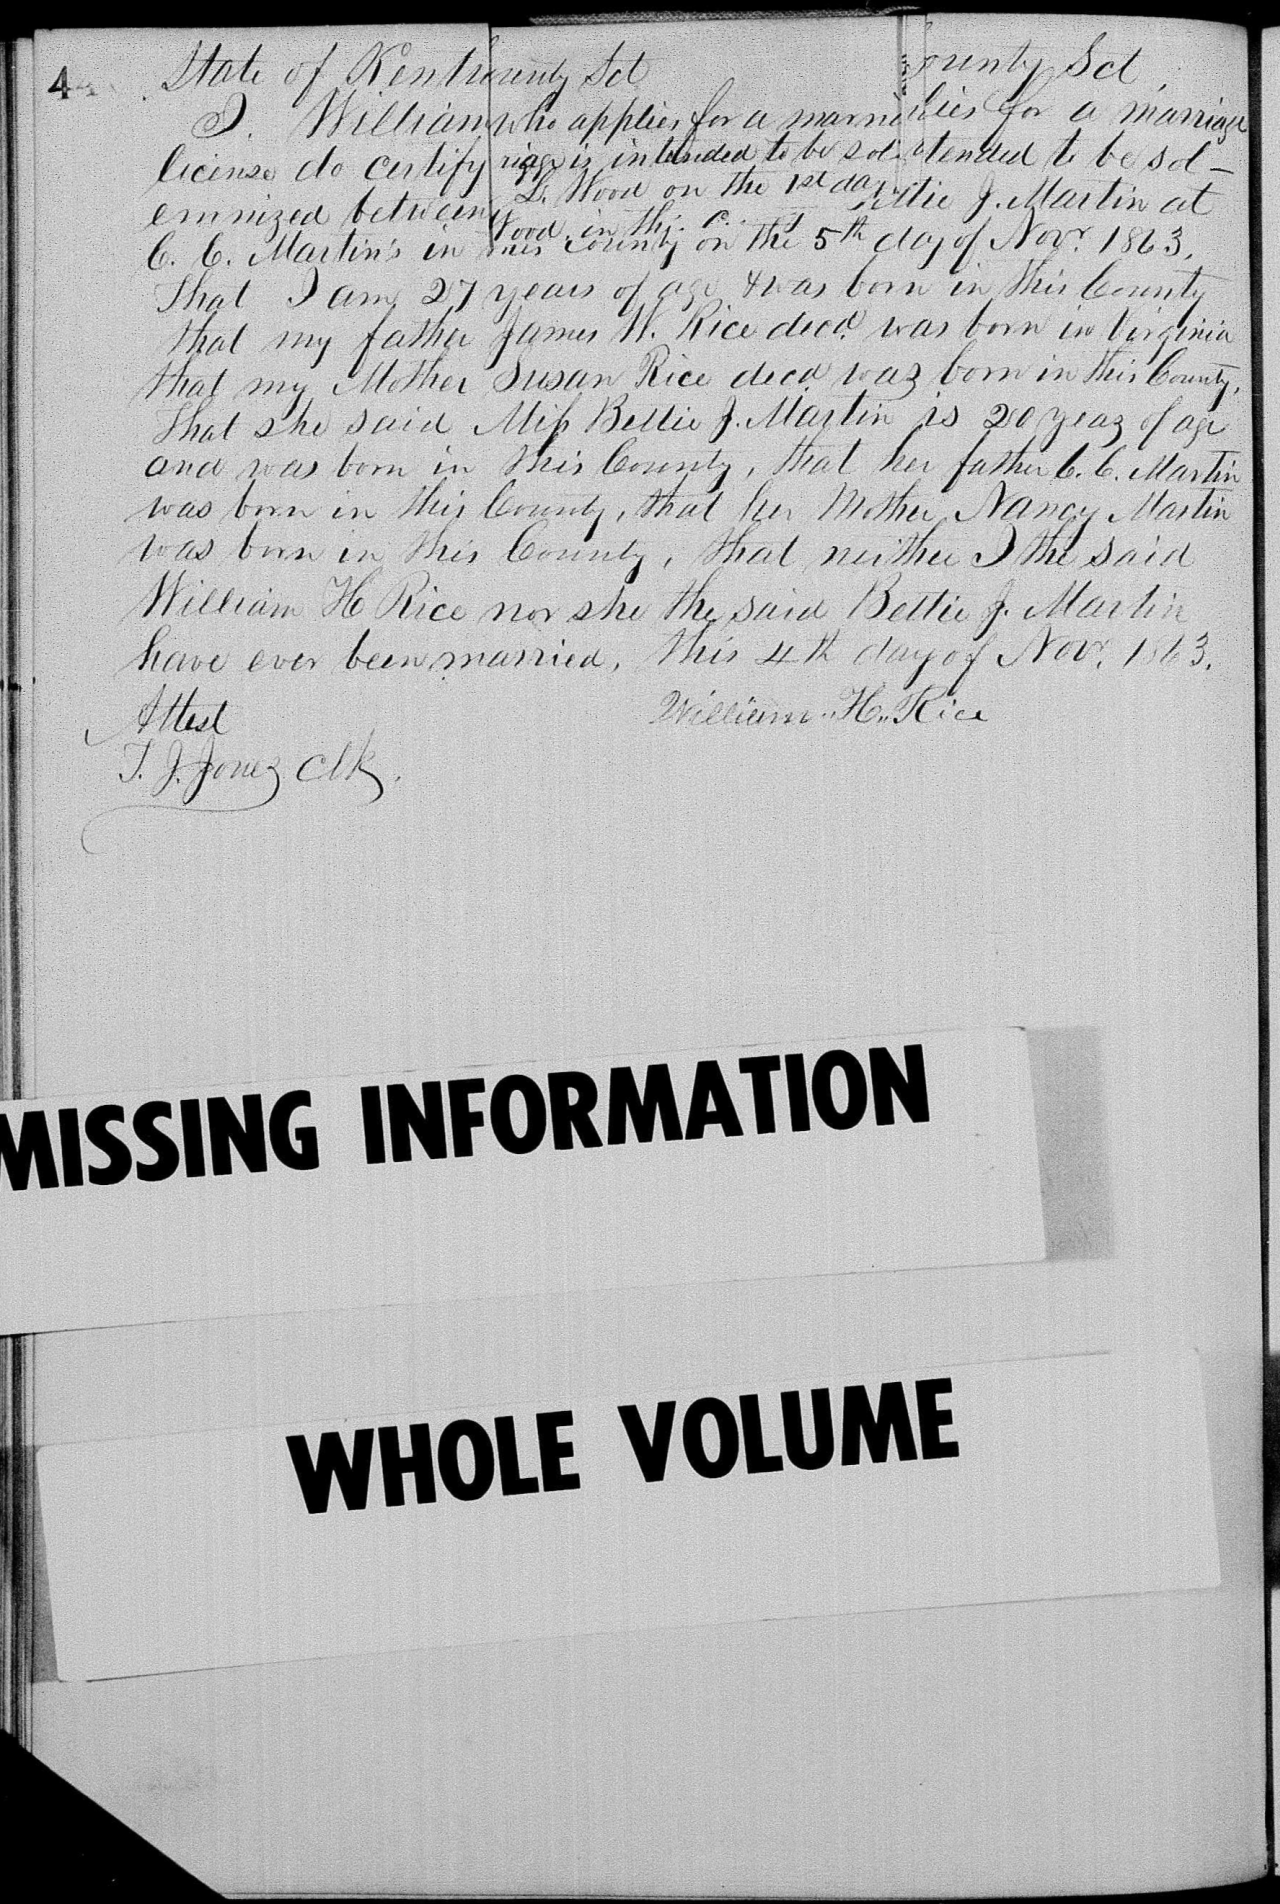 4
State of Kent unty Sct ounty Sct
I. William who applies for a marri lies for a marriage
license do certify riage is intended to be sol tended to be sol-
emnized between L. Wood on the 1st day ttie J. Martin at
Wood in this
C. C. Martin's in this County on the 5th day of Novr. 1863.
That I am 27 years of age & was born in this County
that my father James W. Rice decd. was born in Virginia
that my Mother Susan Rice decd was born in this County,
That she said Miss Bettie J. Martin is 20 years of age
and was born in this County, that her father C. C. Martin
was born in this County, that her Mother Nancy Martin
was born in this County, that neither I the said
William H Rice nor she the said Bettie J. Martin
have ever been married, this 4th day of Novr. 1863.
Attest William. H. Rice
T. J. Jones Clk.
MISSING INFORMATION
WHOLE VOLUME